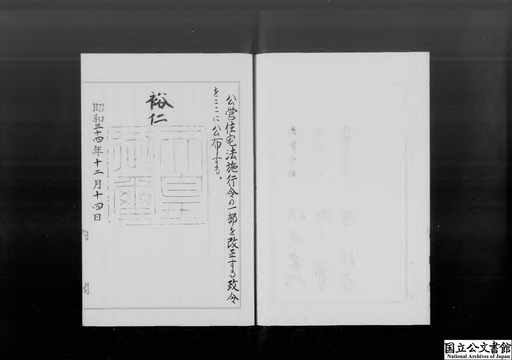 公営住宅法施行令の一部を改正する政令
をここに公布する。
裕仁
天皇
御璽
昭和三十四年十二月十四日
国立公文書館
National Archives of Japan